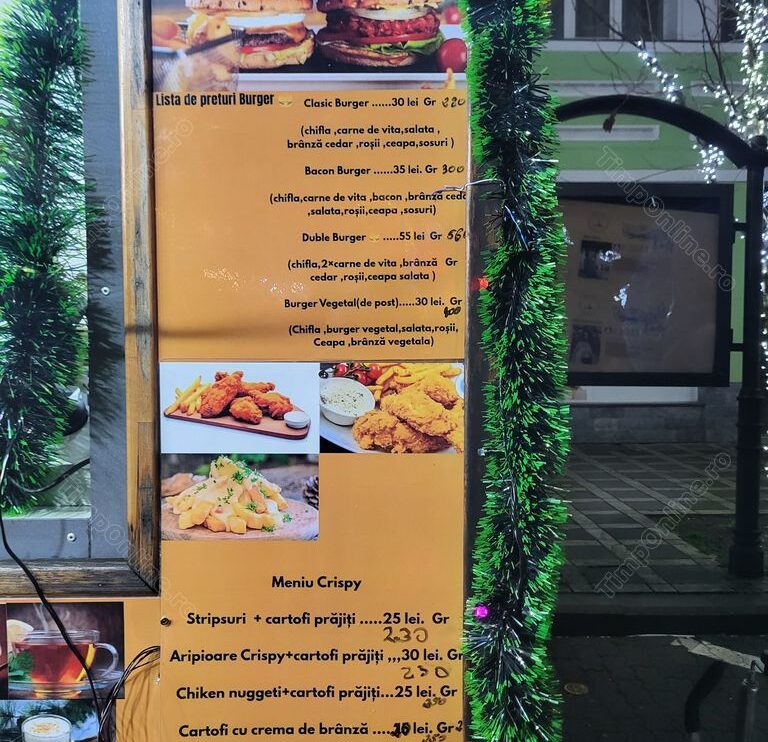 Lista de preturi Burger
Clasic Burger ......30 lei Gr 220
(chifla ,carne de vita,salata ,
brânză cedar ,roșii ,ceapa,sosuri )
Bacon Burger ......35 lei. Gr 300
(chifla,carne de vita ,bacon ,brânză
,salata,roșii,ceapa ,sosuri)
Duble Burger .....55 lei Gr
(chifla,2×carne de vita ,brânză Gr
cedar ,roșii,ceapa salata )
Burger Vegetal(de post).....30 lei. Gr
(Chifla ,burger vegetal,salata,roșii,
Ceapa ,brânză vegetala)
Meniu Crispy
Stripsuri + cartofi prăjiți .....25 lei. Gr
230
Aripioare Crispy+cartofi prăjiți ,,,30 lei. Gr
230
Chiken nuggeti+cartofi prăjiți...25 lei. Gr
Cartofi cu crema de brânză lei. Gr
TimpOnline.ro
TimpOnline.ro
TimpOnline.ro